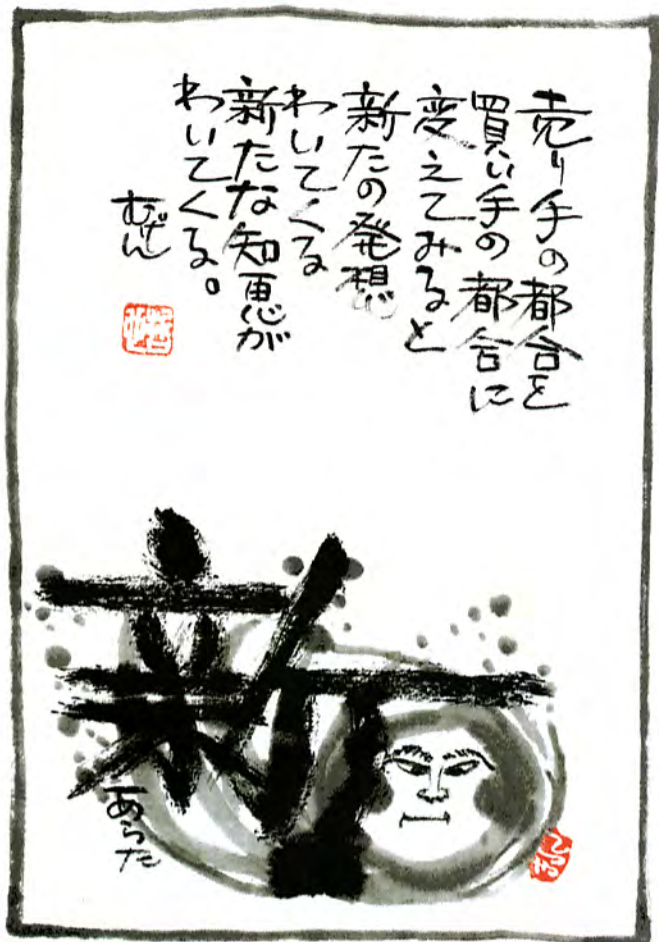 売り手の都合を
買い手の都合に
変えてみると
新たの発想
わいてくる
新たな知恵が
わいてくる。
むげん
新
あらた